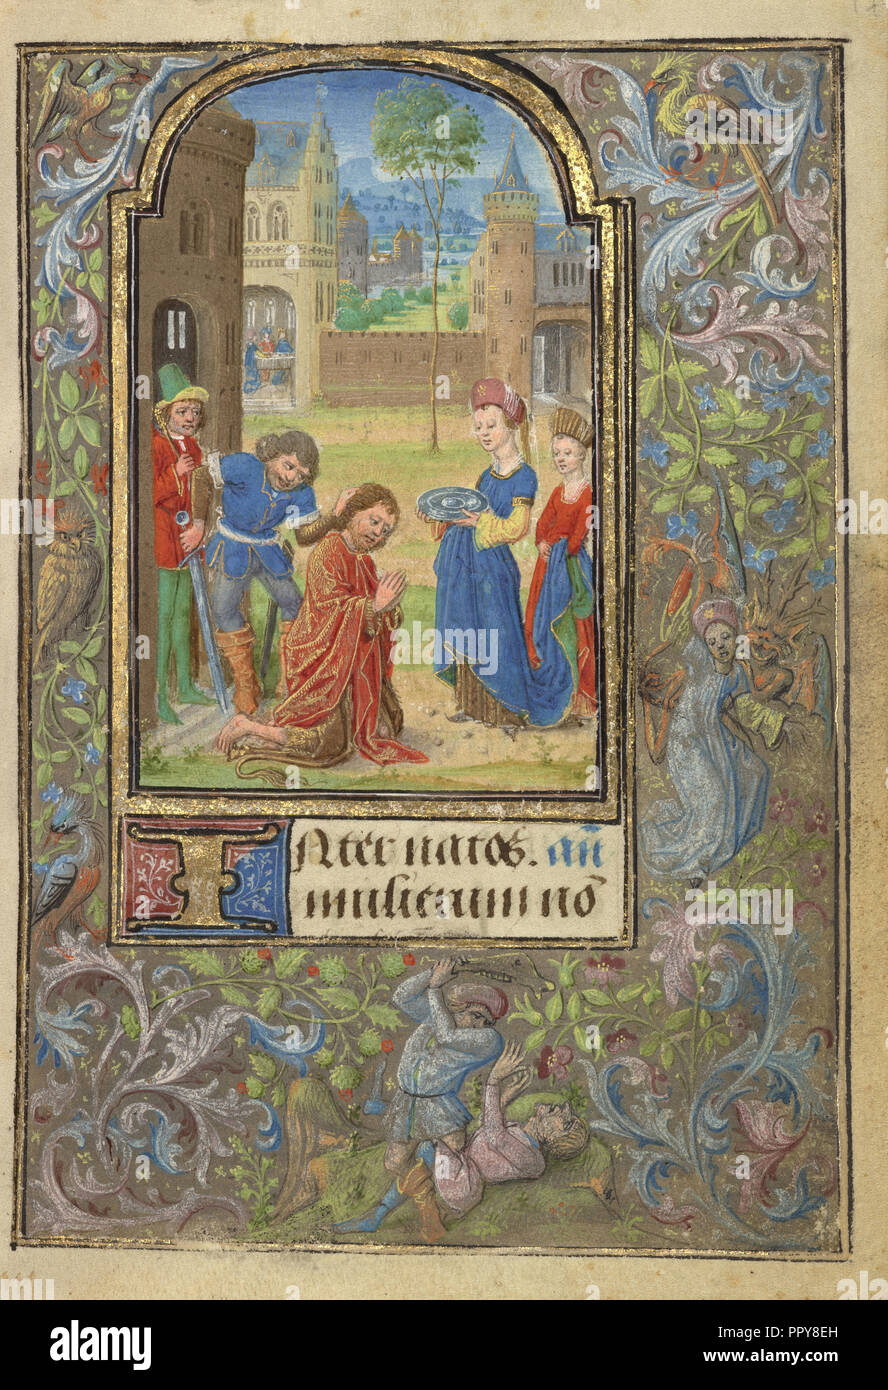 Inter natos. añ
mulierum nō
alamy
Image ID: PPY8EH
www.alamy.com